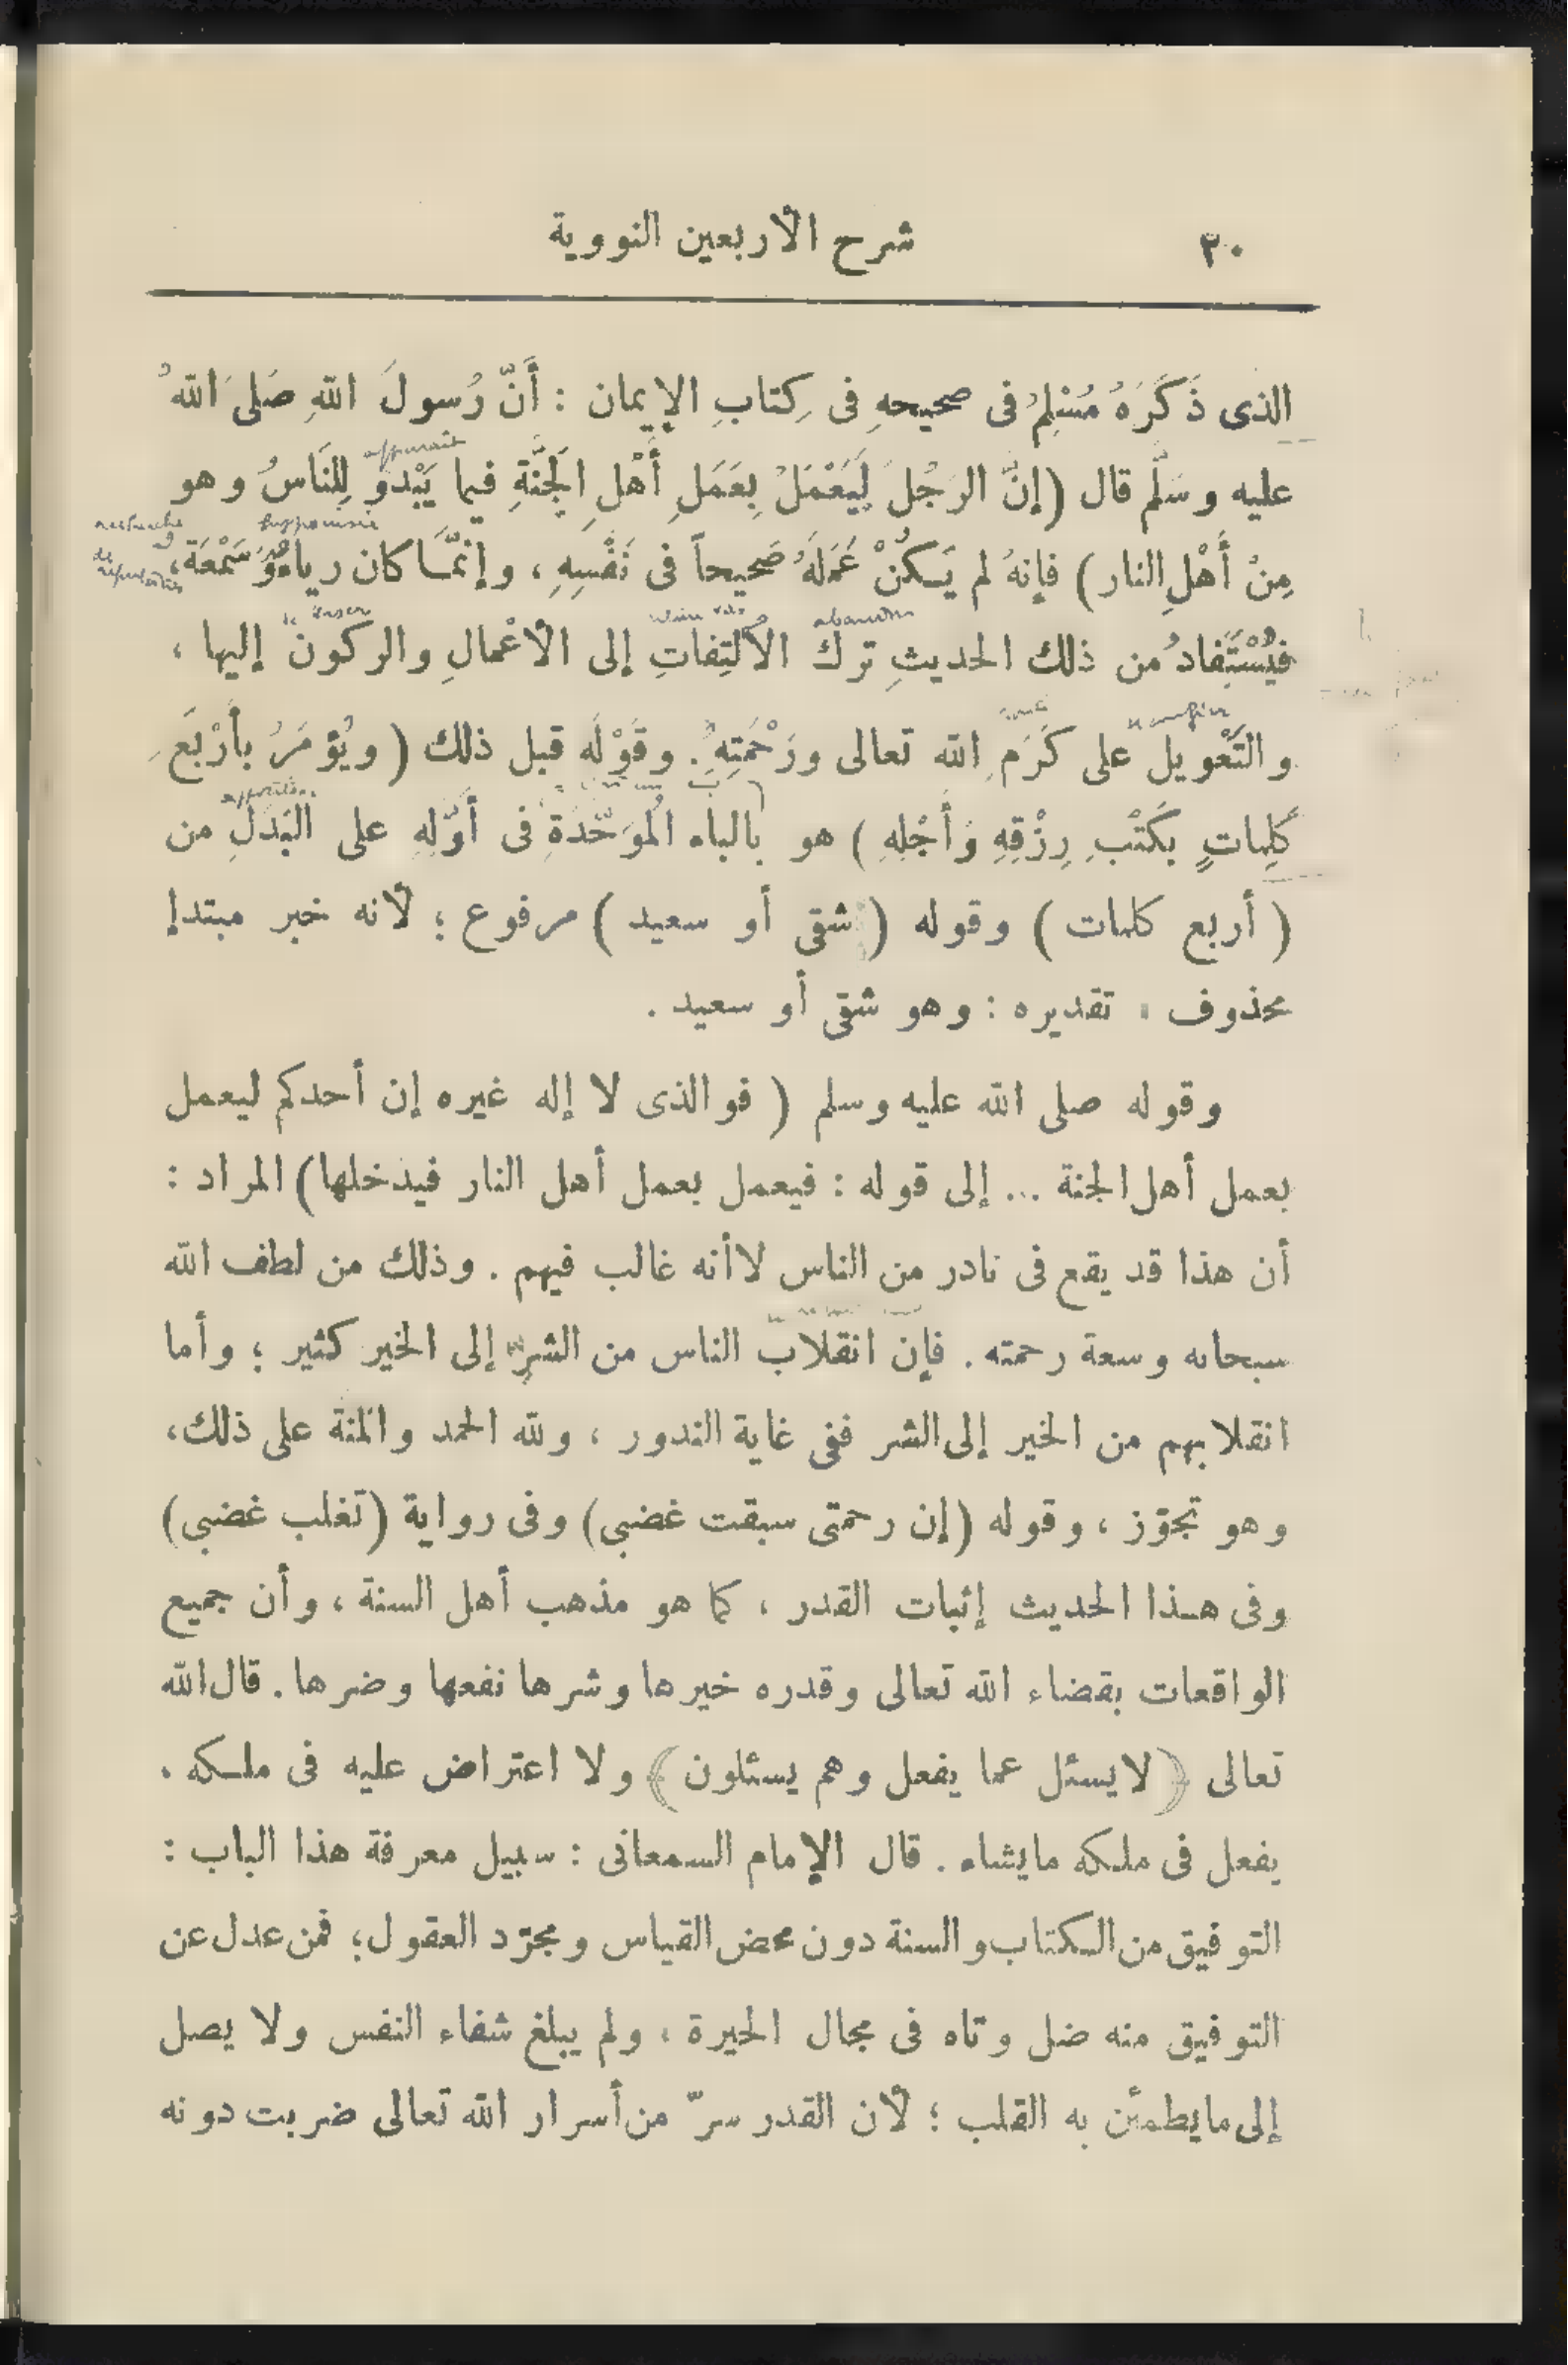 ٢٠ شرح الأربعين النووية
الذى ذَكَرَهُ مُسْلِمُ فى صحيحهِ فى كِتابِ الإيمان : أَنّ رُسولَ اللهِ صَلىَ اللهُ
عليه وسَلّم قال (إنَّ الرَجُلَ لَيَعْمَلُ بِعَمَلِ أَهْلِ الَجَنَّةِ فيما يَبْدو لِلنَاسُ وهو
مِنْ أَهْلِ النار) فإنهُ لم يَكُنْ عَمَلَهُ صَحيحاً فى نَفْسِهِ ، وإنَّمَا كان رياء وَسَمْعَة ،
فيُسْتَفادُ من ذلك الحديثِ ترك الألتِفاتِ إلى الأعْمالِ والركون إليها ،
والتَعْويل على كَرَمِ الله تعالى ورَحْمَتِهِ . وقَوْلَه قبل ذلك ( ويُؤمَرُ بأَرْبَعِ
كَلِماتٍ بكَتْبِ رِزْقِهِ وَأَجْلِهِ ) هو بالباء الُمَوَحَّدَةِ فى أوّلهِ على البَدَلِ من
( أربع كلمات ) وقوله ( شقى أو سعيد ) مرفوع ؛ لأنه خبر مبتدإ
محذوف ، تقديره : وهو شقى أو سعيد .
وقوله صلى الله عليه وسلم ( فوالذى لا إله غيره إن أحدكم ليعمل
بعمل أهل الجنة ... إلى قوله : فيعمل بعمل أهل النار فيدخلها) المراد :
أن هذا قد يقع فى نادر من الناس لاأنه غالب فيهم . وذلك من لطف الله
سبحانه وسعة رحمته . فإن انقلاب الناس من الشرّ إلى الخير كثير ؛ وأما
انقلابهم من الخير إلى الشر ففى غاية الندور ، ولله الحمد والمنة على ذلك ،
وهو تجوّز ، وقوله (إن رحمتى سبقت غضبى) وفى رواية (تغلب غضبى)
وفى هذا الحديث إثبات القدر ، كما هو مذهب أهل السنة ، وأن جميع
الواقعات بقضاء الله تعالى وقدره خيرها وشرها نفعها وضرها . قال الله
تعالى ﴿لايسئل عما يفعل وهم يسئلون﴾ ولا اعتراض عليه فى ملكه .
يفعل فى ملكه مايشاء . قال الإمام السمعانى : سبيل معرفة هذا الباب :
التوفيق من الكتاب والسنة دون محض القياس ومجرّد العقول ؛ فمن عدل عن
التوفيق منه ضل وتاه فى مجال الحيرة ، ولم يبلغ شفاء النفس ولا يصل
إلى مايطمئن به القلب ؛ لأن القدر سرّ من أسرار الله تعالى ضربت دونه
apparait
recherche
de
hypocrisie
abandon